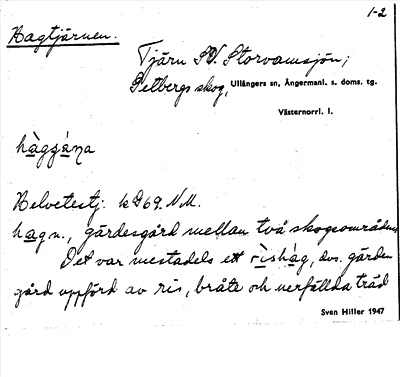 1-2
Hagtjärnen.
Tjärn SV. Storvamsjön;
skog, Ullångers sn, Ångermanl. s. doms. tg.
Västernorrl. l.
hàggána
Helvetestj. k D69. NM.
hag n., gärdesgård mellan två skogsområden
Det var mestadels ett rìshág, dvs. gärdes-
gård uppförd av ris, bråte och nerfällda träd
Sven Hiller 1947